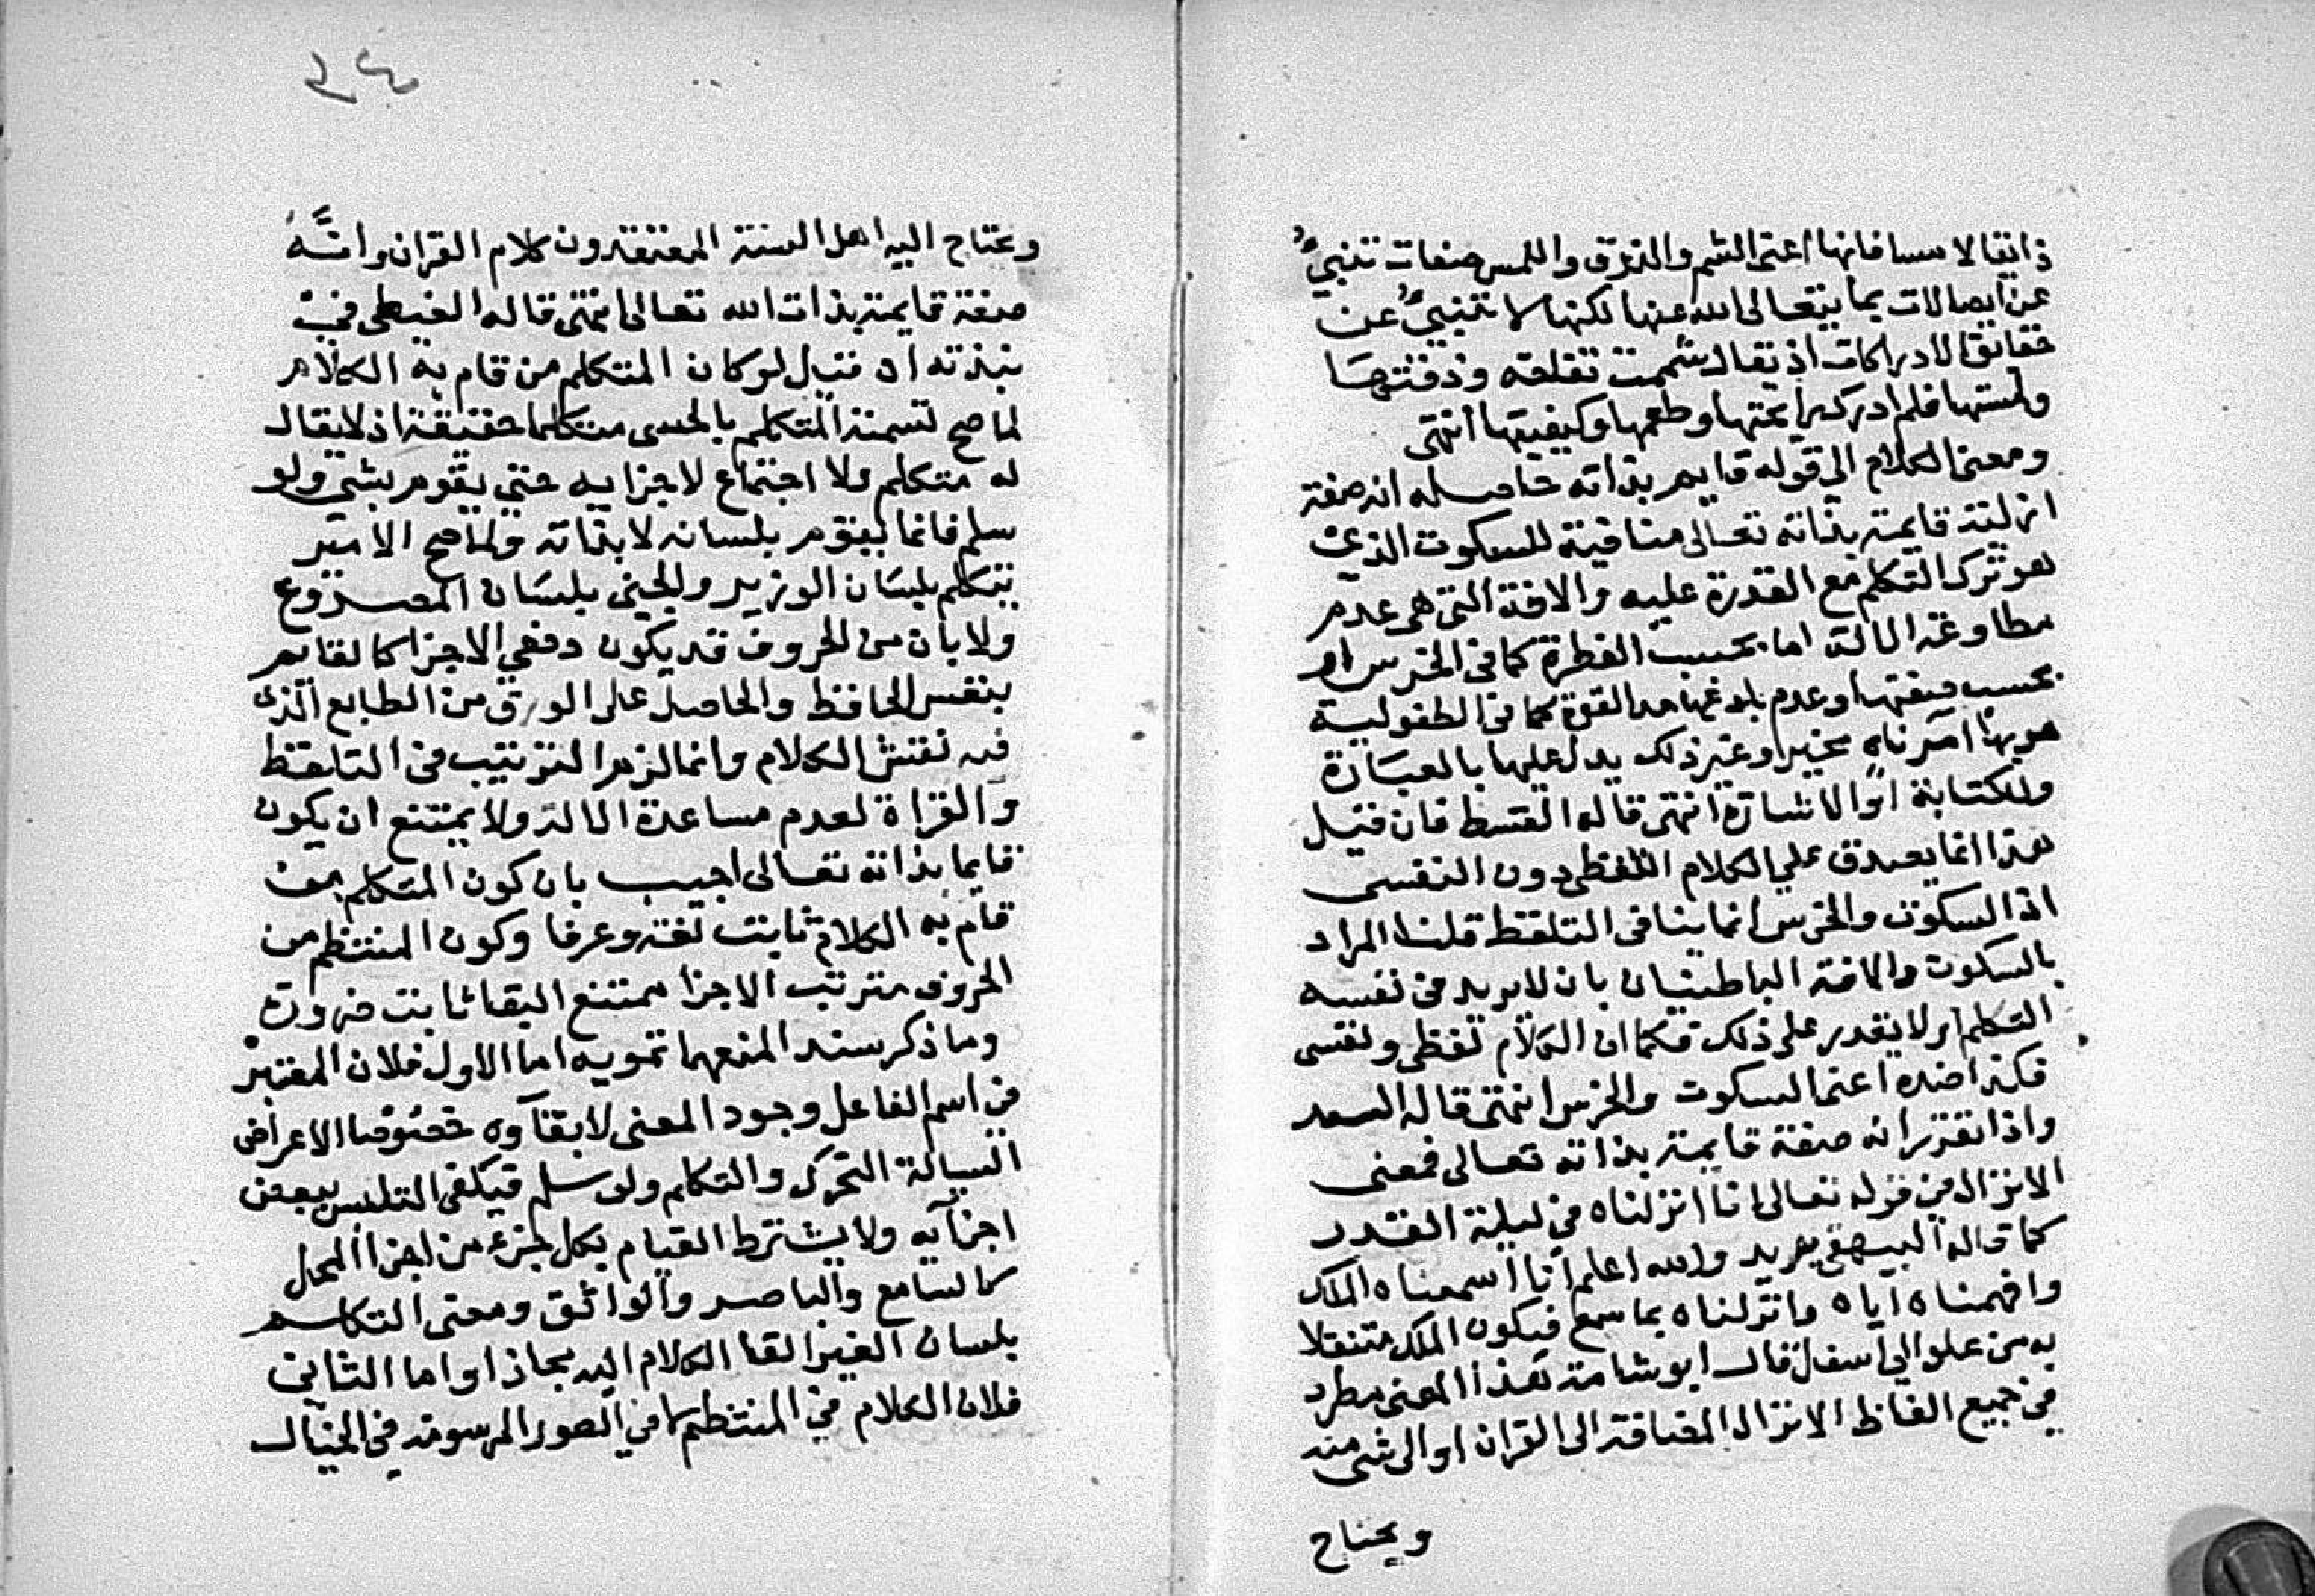 ذائقا لامسا فانها اعنى الشم والذوق واللمس صفات تنبئ
عن اتصالات بما يتعالى الله عنها لكنها لا تنبئ عن
حقائق الادراكات اذ يقال شممت تفاحة وذقتها
ولمستها فلم ادرك رايحتها وطعمها وكيفيتها انتهى
ومعنى الكلام الى قوله قايم بذاته حاصله انه صفة
ازلية قايمة بذاته تعالى منافية للسكوت الذي
هو ترك التكلم مع القدرة عليه والافة التي هي عدم
مطاوعة الالة اما بحسب الفطرة كما في الخرس او
بحسب ضعفها وعدم بلوغها حد القوة كما في الطفولية
هو بها امر ناه مخبر وغير ذلك يدل عليها بالعبارة
والكتابة او الاشارة انتهى قاله القسط فان قيل
هذا انما يصدق على الكلام اللفظي دون النفسي
اذ السكوت والخرس انما ينافي التلفظ قلنا المراد
بالسكوت والافة الباطنيان بان لا يريد في نفسه
التكلم او لا يقدر على ذلك فكما ان الكلام لفظي ونفسي
فكذا ضده اعنى السكوت والخرس انتهى قاله السعد
واذا تقرر انه صفة قايمة بذاته تعالى فمعنى
الانزال من قوله تعالى انا انزلناه في ليلة القدر
كما قاله البيهقي يريد والله اعلم انا اسمعناه الملك
وافهمناه اياه وانزلناه بما سمع فيكون الملك متنقلا
به من علو الى اسفل قال ابو شامة هذا المعنى مطرد
في جميع الفاظ الانزال المضافة الى القران او الى شي منه
ويحتاج
٢٤
ويحتاج اليه اهل السنة المعتقدون كلام القران وانه
صفة قايمة بذات الله تعالى انتهى قاله الغيطي في
نبذته اد قيل لو كان المتكلم من قام به الكلام
لما صح تسمية المتكلم بالحسي متكلما حقيقة اذ لا يقال
له متكلم ولا اجتماع لاجزايه حتى يقوم بشي ولو
سلم فانما يقوم بلسانه لا بذاته ولما صح الامير
يتكلم بلسان الوزير والجني بلسان المصروع
ولا بان من الحروف قد يكون دفعي الاجزا كالقايم
بنفس الحافظ والحاصل على الورق من الطابع الذي
فيه نقش الكلام وانما لزم الترتيب في التلفظ
والقراة لعدم مساعدة الالة ولا يمتنع ان يكون
قايما بذاته تعالى اجيب بان كون المتكلم من
قام به الكلام ثابت لغة وعرفا وكون المنتظم من
الحروف مترتب الاجزا ممتنع البقا ثابت ضرورة
وما ذكر سند المنعهما تمويه اما الاول فلان المعتبر
في اسم الفاعل وجود المعنى لا بقآوه خصوصا الاعراض
السيالة التحرك والتكلم ولو سلم فيكفي التلبس ببعض
اجزآيه ولا يشترط القيام بكل جزء من اجزا المحل
كالسامع والباصر والذائق ومعنى التكلم
بلسان الغير القا الكلام اليه مجازا واما الثاني
فلان الكلام في المنتظم لا في الصور المرسومة في الخيال